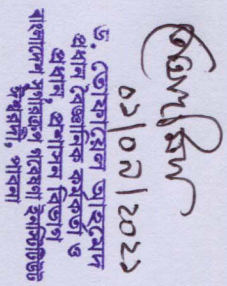 ড. তোফায়েল আহমেদ
প্রধান বৈজ্ঞানিক কর্মকর্তা ও
প্রধান, প্রশাসন বিভাগ
বাংলাদেশ সুগারক্রপ গবেষণা ইনস্টিটিউট
ঈশ্বরদী, পাবনা